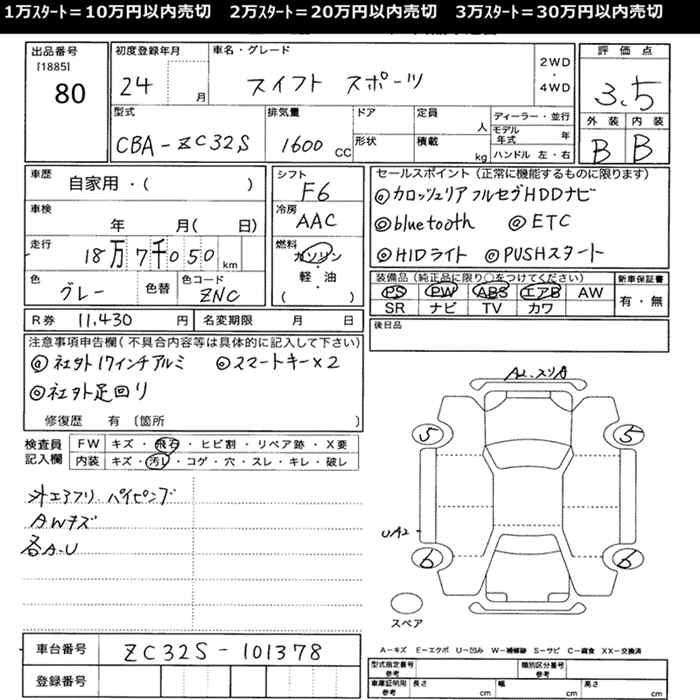 1万スタート＝10万円以内売切　2万スタート＝20万円以内売切　3万スタート＝30万円以内売切
出品番号
[1885]
80
初度登録年月
24
月
車名・グレード
スイフト スポーツ
2WD
・
4WD
評価点
3.5
外装 内装
B B
型式
CBA-ZC32S
排気量
1600 CC
ドア
形状
定員
人
積載
kg
ディーラー・並行
モデル年式 年
ハンドル 左・右
車歴
自家用・( )
車検
年 月( 日)
走行
18万7千050 km
色
グレー
色替
色コード
ZNC
シフト
F6
冷房
AAC
燃料
ガソリン
・
軽・油
( )
セールスポイント (正常に機能するものに限ります)
◎カロッツェリア フルセグHDDナビ
◎bluetooth ◎ETC
◎HIDライト ◎PUSHスタート
装備品 (純正品に限り○をつけてください)
PS PW ABS エアB AW
SR ナビ TV カワ
新車保証書
有・無
R券 11,430 円
名変期限 月 日
後日品
注意事項申告欄(不具合内容等は具体的に記入して下さい)
◎社外17インチアルミ ◎スマートキー×2
◎社外足回り
修復歴 有 〔箇所 〕
検査員記入欄
FW キズ・飛石・ヒビ割・リペア跡・X要
内装 キズ・汚レ・コゲ・穴・スレ・キレ・破レ
外エアクリ. パイピング
AWキズ
各A.U
AL.スリA
5 5
UA2
6 6
スペア
A－キズ E－エクボ U－凹み W－補修跡 S－サビ C－腐食 XX－交換済
車台番号 ZC32S-101378
登録番号
型式指定番号 参考
類別区分番号 参考
車庫証明用 参考
長さ cm
幅 cm
高さ cm